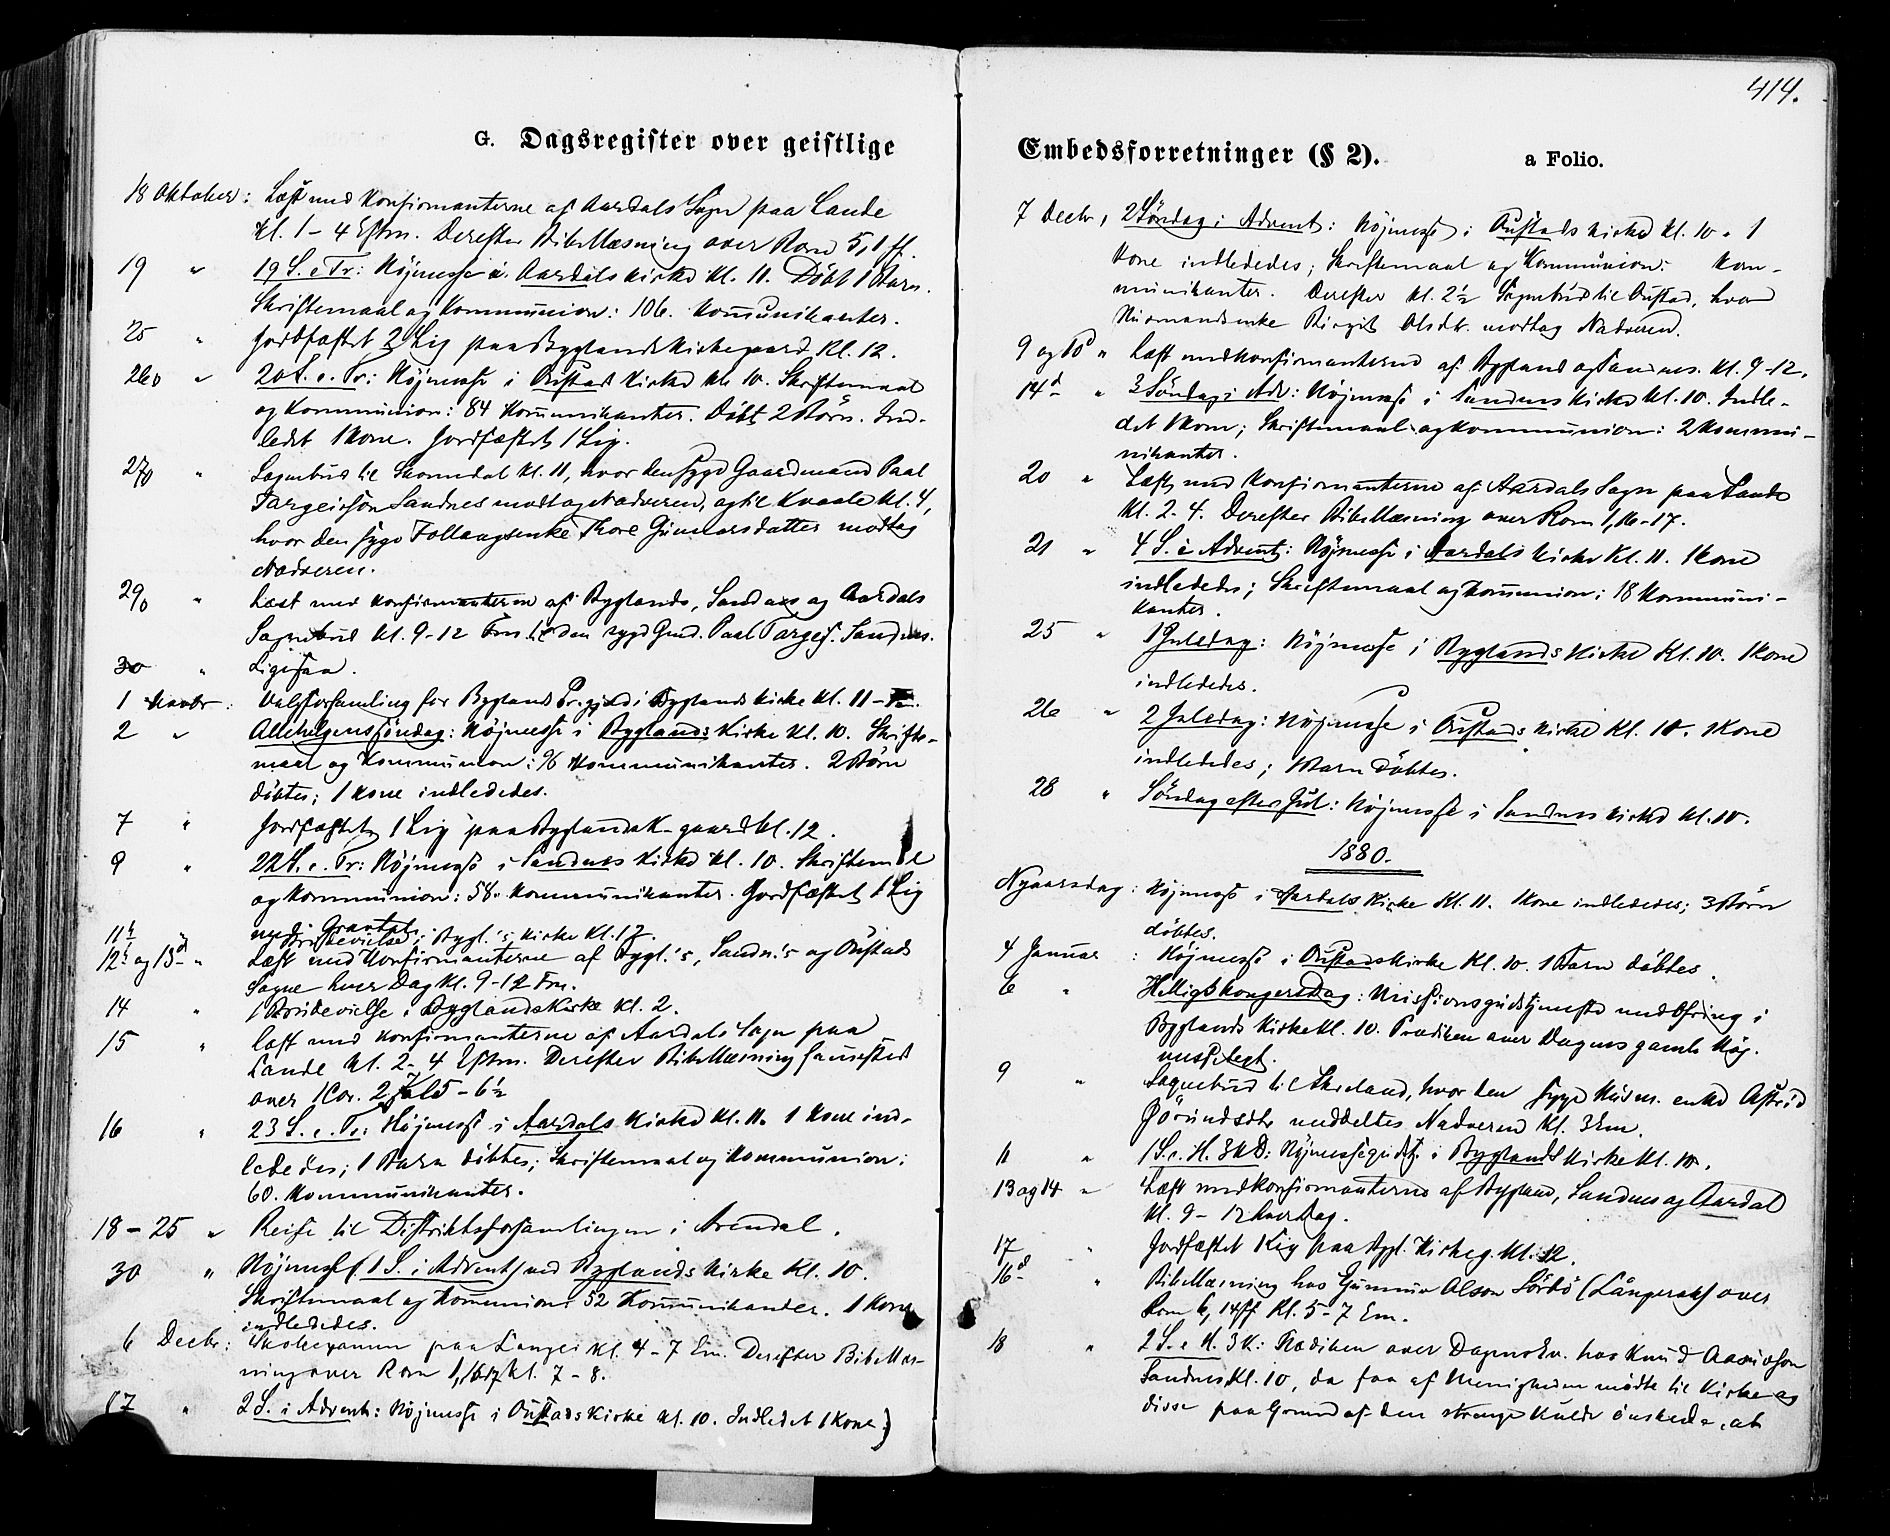 G. Dagsregister over geistlige
18 Oktober: Læst med Konfirmanterne af Aardals Sogn paa Lande
Kl. 1-4 Eftm. Derefter Bibellæsning over Rom 5,1 ff.
19 " 19 S. e. Tr: Højmesse i Aardals Kirke Kl. 11. Döbt 1 Barn.
Skriftemaal og Kommunion: 106. Kommunikanter.
25 " Jordfæstet 2 Lig paa Byglands Kirkegaard Kl. 12.
26 " 20 S. e. Tr: Højmesse i Oustad Kirke Kl. 10. Skriftemaal
og Kommunion: 84 Kommunikanter. Döbt 2 Börn. Ind-
ledet 1 Kone. Jordfæstet 1 Lig.
27 " Sognebud til Skomdal Kl. 11, hvor den syge Gaardmand Paal
Targeisson Sandnes modtog Nadveren, og til Kvaale Kl. 4,
hvor den syge Follaugsenke Thore Gunnarsdatter modtog
Nadveren.
29 " Læst med Konfirmanterne af Byglands, Sandnes og Aardals
Sognebud Kl. 9-12 Fm. til den syge Gmd. Paal Targeis. Sandnes.
30 " Ligesaa.
1 Novbr: Valgforsamling for Bygland Pr.gjeld i Byglands Kirke Kl. 11
2 " Allehelgenssöndag: Højmesse i Byglands Kirke Kl. 10. Skrifte-
maal og Kommunion: 96 Kommunikanter. 2 Börn
döbtes; 1 Kone indlededes.
7 " Jordfæstet 1 Lig paa Byglands K-gaard Kl. 12.
9 " 22 S. e. Tr: Højmesse i Sandnes Kirke Kl. 10. Skriftemaal
og Kommunion: 58. Kommunikanter. Jordfæstet 1 Lig
med Gravtale
11 " Brudevielse i Bygl.'s Kirke Kl. 12.
12 og 13 " Læst med Konfirmanterne af Bygl.'s, Sandn.'s og Oustads
Sogne hver Dag Kl. 9-12 Fm.
14 " 1 Brudevielse i Byglands Kirke Kl. 2.
15 " Læst med Konfirmanterne af Aardals Sogn paa
Lande Kl. 2-4 Eftm. Derefter Bibellæsning sammesteds
over 1 Cor. 2, Kl 5-6½
16 " 23 S. e. Tr: Højmesse i Aardals Kirke Kl. 11. 1 Kone ind-
lededes; 1 Barn döbtes; Skriftemaal og Kommunion:
60. Kommunikanter.
18-25 " Reise til Distriktsforsamlingen i Arendal.
30 " Højmesse (1 S. i Advent) ved Byglands Kirke Kl. 10.
Skriftemaal og Kommunion: 52 Kommunikanter. 1 Kone
indlededes.
6 Decbr: Skoleexamen paa Langei Kl. 4-7 Em. Derefter Bibellæs-
ning over Rom 1,16,17 Kl. 7-8.
7 " 2 S. i Advent: Højmesse i Oustads Kirke Kl. 10. Indledet 1 Kone)
414.
Embedsforretninger (§ 2). a Folio.
7 Decbr, 2 Söndag i Advent: Højmesse i Oustads Kirke Kl. 10. 1
Kone indlededes; Skriftemaal og Kommunion: Kom-
munikanter. Derefter Kl. 2½ Sognebud til Oustad, hvor
Husmandsenke Birgit Olsdtr. modtog Nadveren.
9 og 10 " Læst med Konfirmanterne af Bygland og Sandnes. Kl. 9-12.
14 " 3 Söndag i Adv: Højmesse i Sandnes Kirke Kl. 10. Indle-
det 1 Kone; Skriftemaal og Kommunion: 2 Kommu-
nikanter.
20 " Læst med Konfirmanterne af Aardals Sogn paa Lande
Kl. 2-4. Derefter Bibellæsning over Rom 1,16-17.
21 " 4 S. i Advent: Højmesse i Aardals Kirke Kl. 11. 1 Kone
indlededes; Skriftemaal og Kommunion: 18 Kommuni-
kanter.
25 " 1 Juledag: Højmesse i Byglands Kirke Kl. 10. 1 Kone
indlededes.
26 " 2 Juledag: Højmesse i Oustads Kirke Kl. 10. 1 Kone
indlededes; 1 Barn döbtes.
28 " Söndag efter Jul: Højmesse i Sandnes Kirke Kl. 10.
1880.
Nyaarsdag: Højmesse i Aardals Kirke Kl. 11. 1 Kone indlededes; 3 Börn
döbtes.
4 Januar: Højmesse i Oustads Kirke Kl. 10. 1 Barn döbtes.
6 " Hellig 3 Kongersdag: Missionsgudstjeneste med Ofring i
Byglands Kirke Kl. 10. Prædiken over Dagens gamle Høj-
messetext.
9 " Sognebud til Skreland, hvor den syge Husm. enke Astrid
Jörundsdtr meddeltes Nadveren Kl. 3 Em.
11 " 1 S. e. H. 3 K D: Højmessegudst. i Byglands Kirke Kl. 10.
13 og 14 " Læst med Konfirmanterne af Bygland, Sandnes og Aardal
Kl. 9-12 hver Dag.
17 " Jordfæstet 1 Lig paa Bygl. Kirkeg. Kl. 12.
16 " Bibellæsning hos Gunnuv Olson Sördö (Langerak) over
Rom 6, 14 ff Kl. 5-7 Em.
18 " 2 S. e. H. 3 K.: Prædiken over Dagens Ev. hos Knud Aasuvson
Sandnes, Kl. 10, da faa af Menigheden mödte til Kirke og
disse paa Grund af den strenge Kulde önskede, at